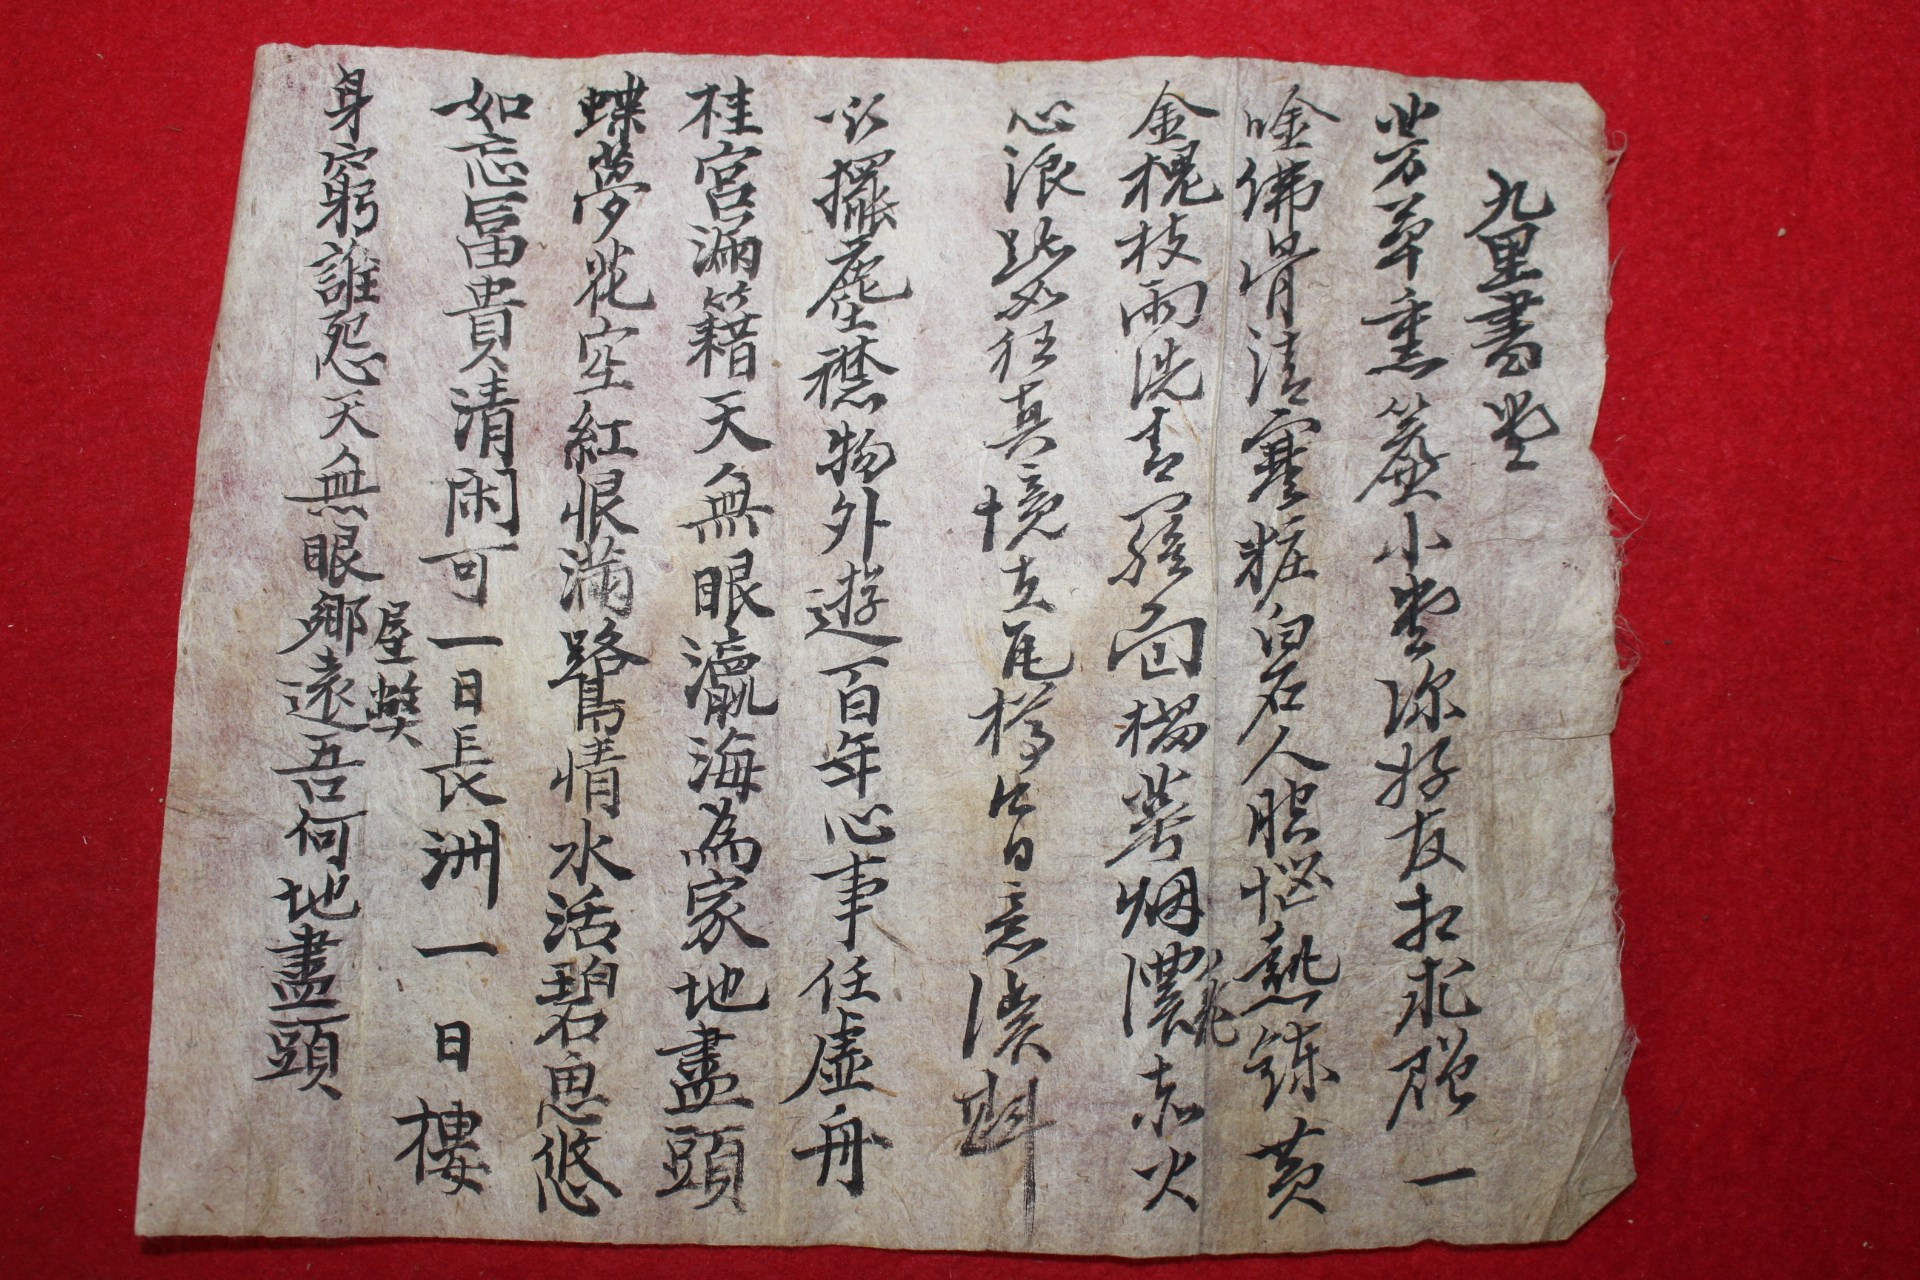 九里書堂
芳草熏簾小堂深好友相求贈一
唫佛骨清寒粧白石人腸惱熱鍊黄
金槐枝雨洗青羅面榴萼烟濃赤火
心浪跡如狂真境在瓦樽皆日意
必擺塵襟物外遊百年心事任虛舟
桂宮漏籍天無眼瀛海為家地盡頭
蝶夢花空紅恨滿路鳥情水活碧思悠
如忘富貴清閑可一日長洲一日樓
屋弊
身窮誰怨天無眼鄉遠吾何地盡頭